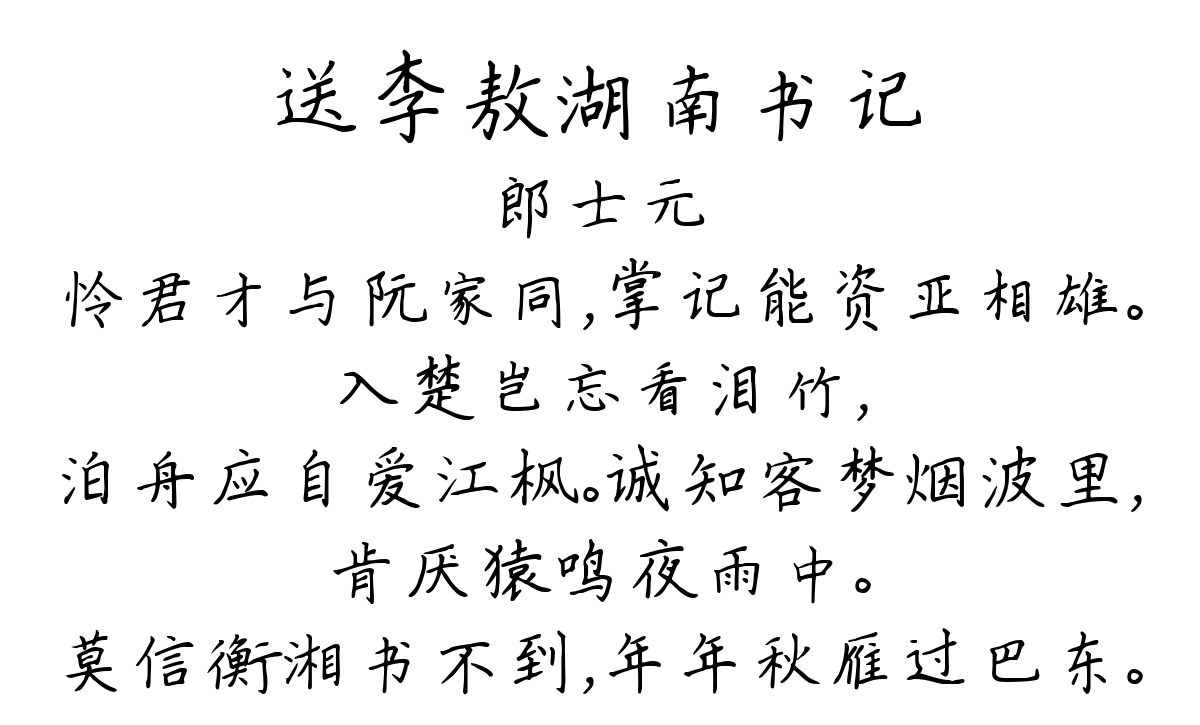 送李敖湖南书记
郎士元
怜君才与阮家同,掌记能资亚相雄。
入楚岂忘看泪竹,
泊舟应自爱江枫。诚知客梦烟波里,
肯厌猿鸣夜雨中。
莫信衡湘书不到,年年秋雁过巴东。